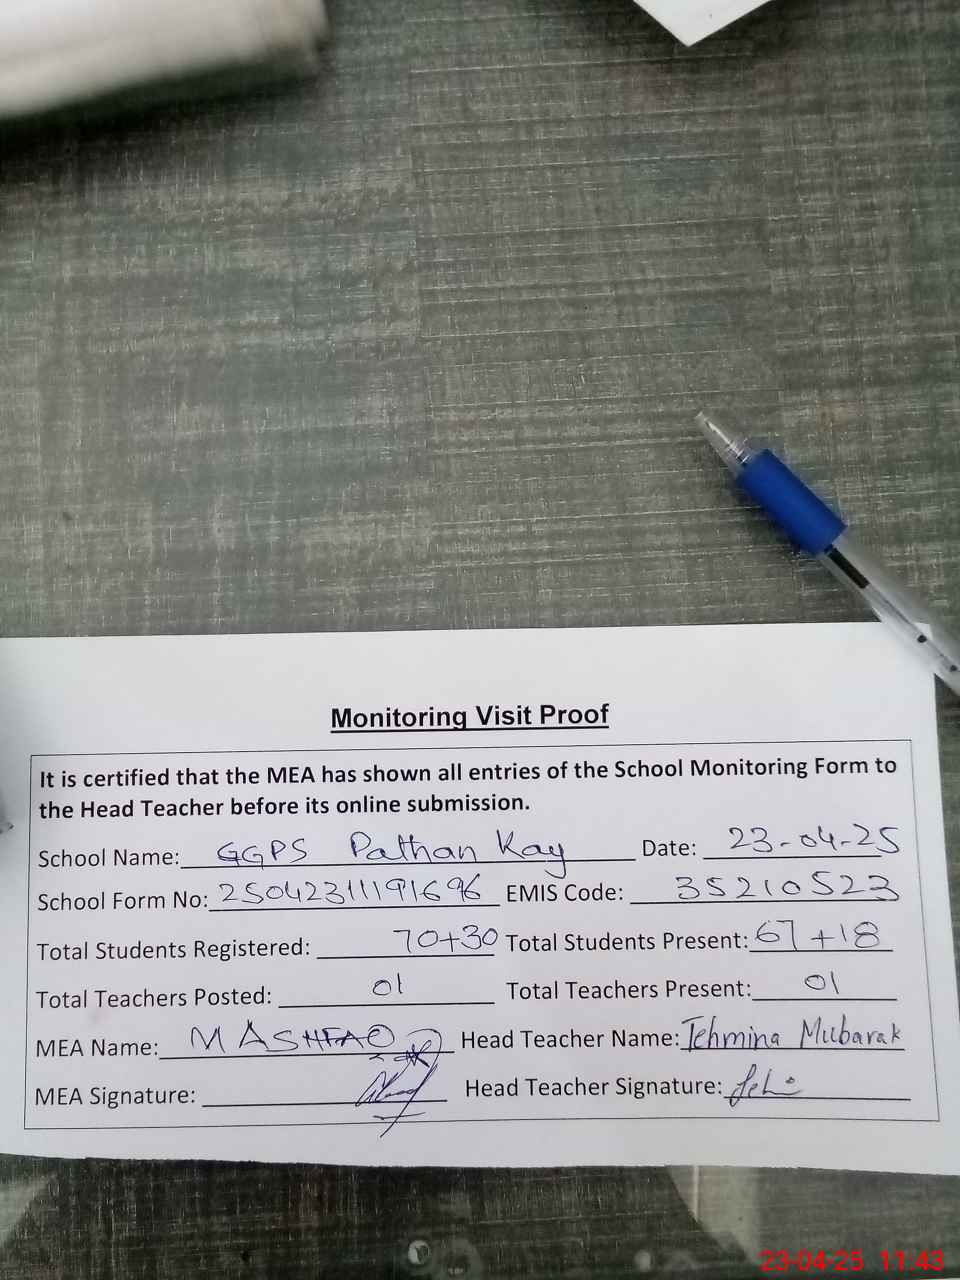 Monitoring Visit Proof
It is certified that the MEA has shown all entries of the School Monitoring Form to
the Head Teacher before its online submission.
School Name: GGPS Pathan Kay Date: 23-04-25
School Form No: 25042311191696 EMIS Code: 35210523
Total Students Registered: 70+30 Total Students Present: 67+18
Total Teachers Posted: 01 Total Teachers Present: 01
MEA Name: M ASHFAQ Head Teacher Name: Tehmina Mubarak
MEA Signature: Head Teacher Signature:
23-04-25 11:43